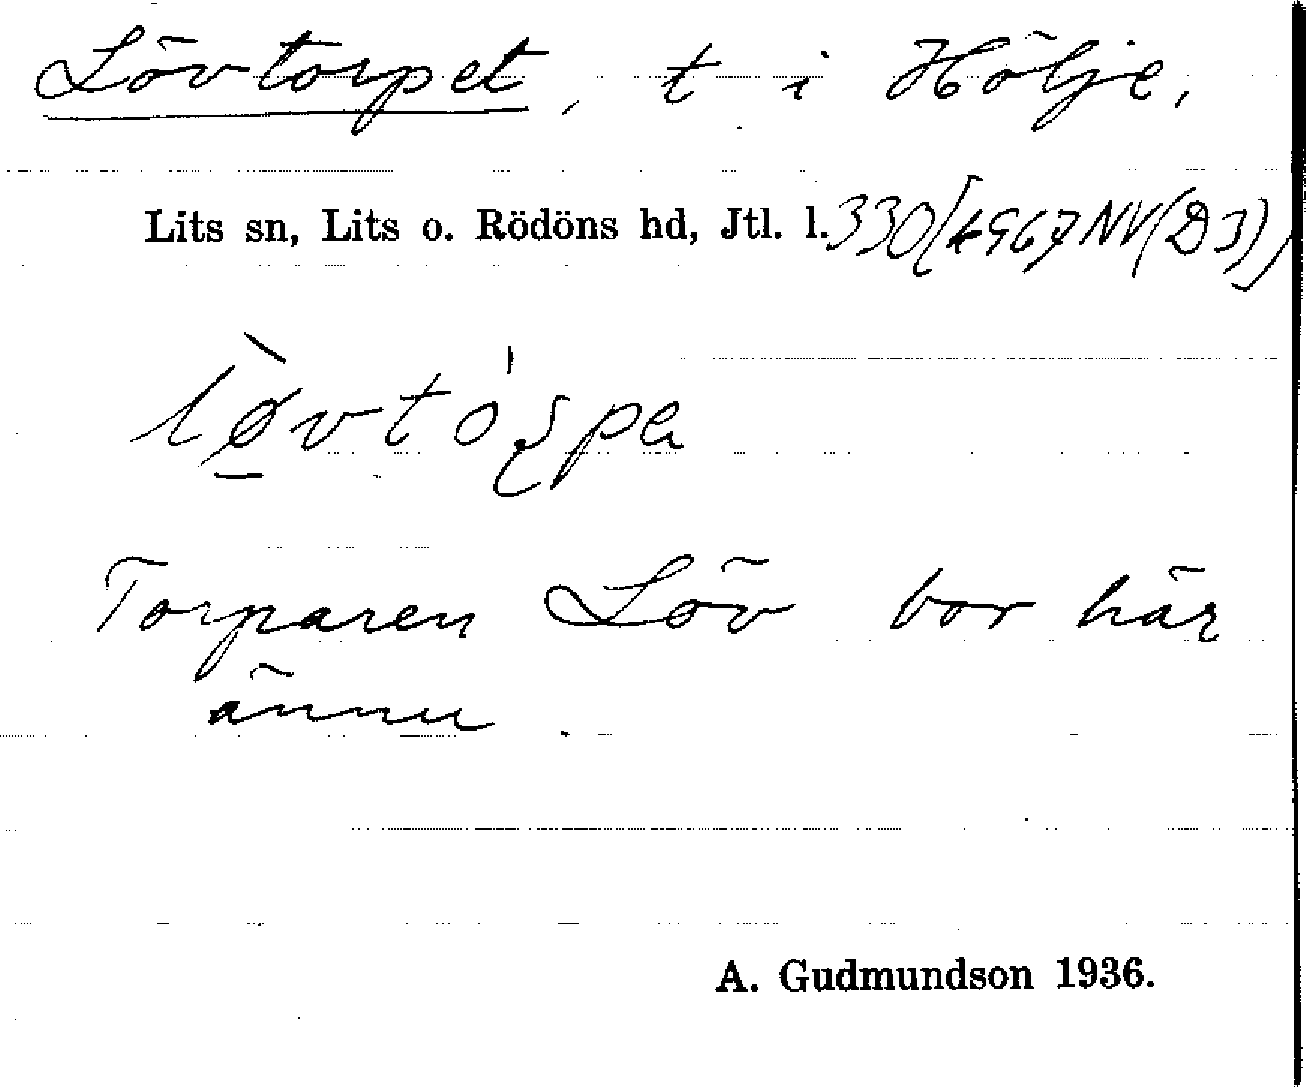 Lövtorpet, t i Hölje,
Lits sn, Lits o. Rödöns hd, Jtl. l. 330/(4967 NV(D3))
Torparen Löv bor här
ännu.
A. Gudmundson 1936.